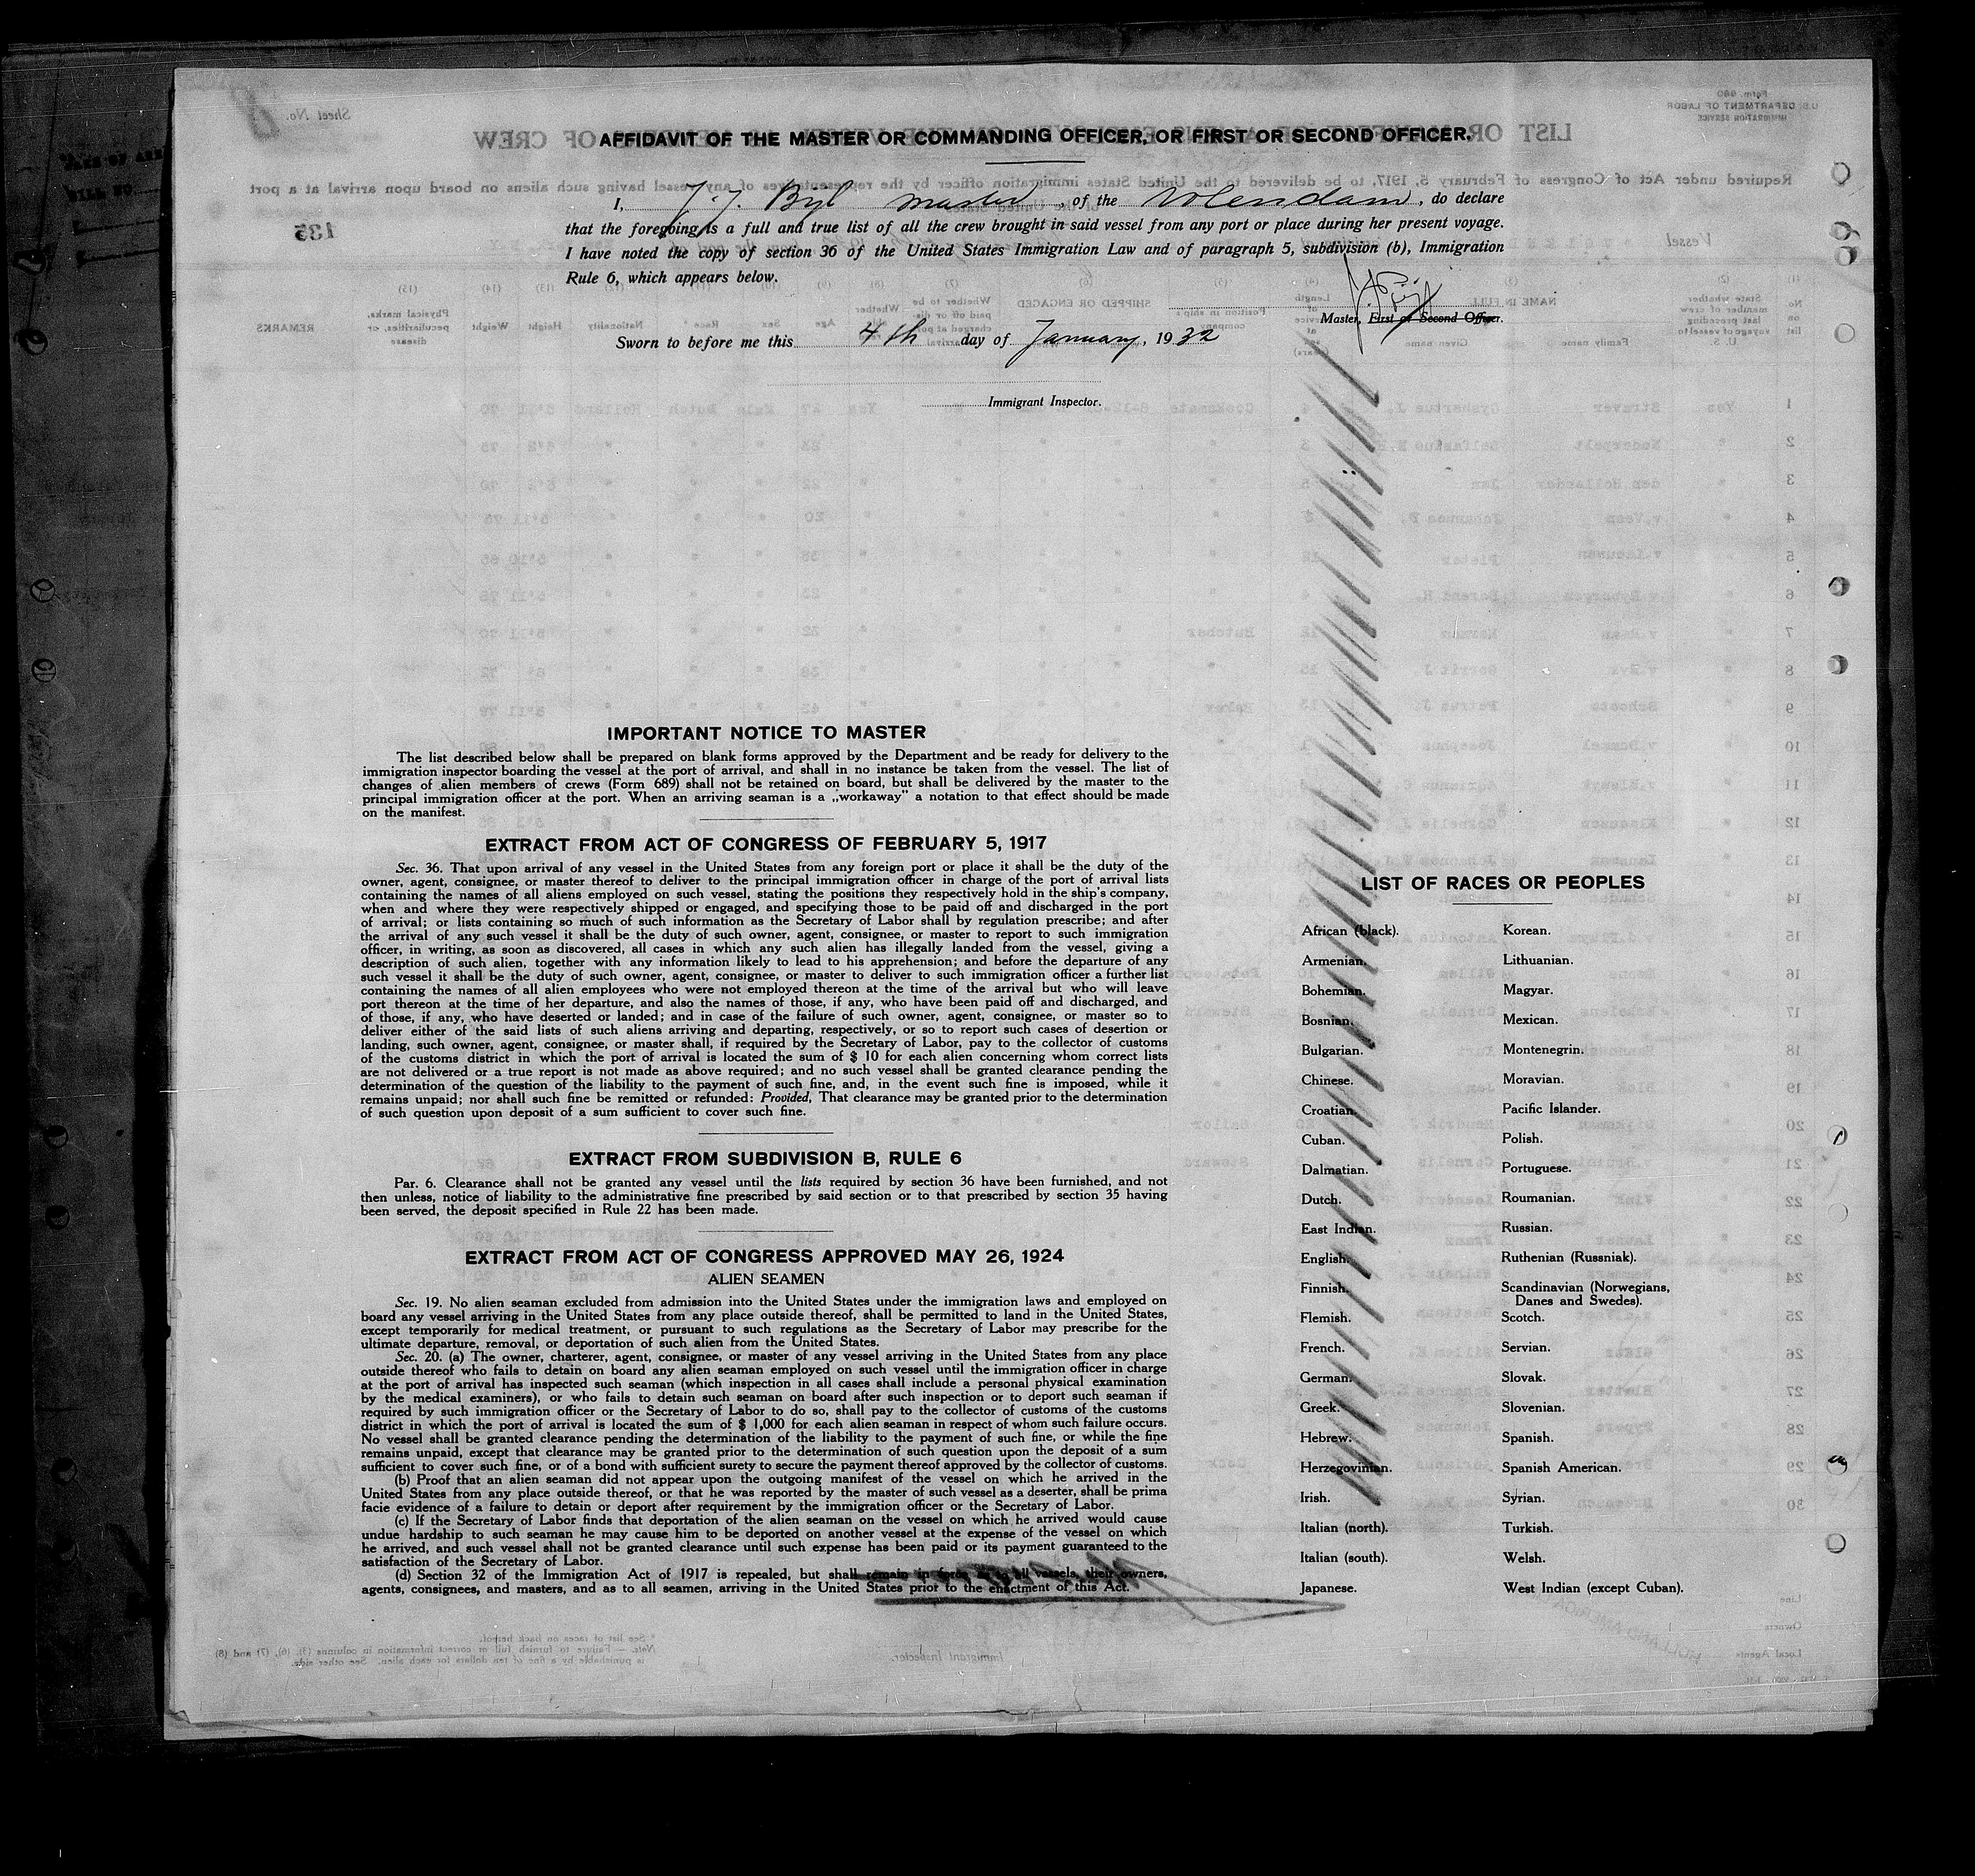 AFFIDAVIT OF THE MASTER OR COMMANDING OFFICER, OR FIRST OR SECOND OFFICER.
I, J. J. Bijl master, of the Volendam, do declare
that the foregoing is a full and true list of all the crew brought in said vessel from any port or place during her present voyage.
I have noted the copy of section 36 of the United States Immigration Law and of paragraph 5, subdivision (b), Immigration
Rule 6, which appears below.
Master, First or Second Officer.
Sworn to before me this 4th day of January, 1932
Immigrant Inspector.
IMPORTANT NOTICE TO MASTER
The list described below shall be prepared on blank forms approved by the Department and be ready for delivery to the
immigration inspector boarding the vessel at the port of arrival, and shall in no instance be taken from the vessel. The list of
changes of alien members of crews (Form 689) shall not be retained on board, but shall be delivered by the master to the
principal immigration officer at the port. When an arriving seaman is a „workaway" a notation to that effect should be made
on the manifest.
EXTRACT FROM ACT OF CONGRESS OF FEBRUARY 5, 1917
Sec. 36. That upon arrival of any vessel in the United States from any foreign port or place it shall be the duty of the
owner, agent, consignee, or master thereof to deliver to the principal immigration officer in charge of the port of arrival lists
containing the names of all aliens employed on such vessel, stating the positions they respectively hold in the ship's company,
when and where they were respectively shipped or engaged, and specifying those to be paid off and discharged in the port
of arrival; or lists containing so much of such information as the Secretary of Labor shall by regulation prescribe; and after
the arrival of any such vessel it shall be the duty of such owner, agent, consignee, or master to report to such immigration
officer, in writing, as soon as discovered, all cases in which any such alien has illegally landed from the vessel, giving a
description of such alien, together with any information likely to lead to his apprehension; and before the departure of any
such vessel it shall be the duty of such owner, agent, consignee, or master to deliver to such immigration officer a further list
containing the names of all alien employees who were not employed thereon at the time of the arrival but who will leave
port thereon at the time of her departure, and also the names of those, if any, who have been paid off and discharged, and
of those, if any, who have deserted or landed; and in case of the failure of such owner, agent, consignee, or master so to
deliver either of the said lists of such aliens arriving and departing, respectively, or so to report such cases of desertion or
landing, such owner, agent, consignee, or master shall, if required by the Secretary of Labor, pay to the collector of customs
of the customs district in which the port of arrival is located the sum of $ 10 for each alien concerning whom correct lists
are not delivered or a true report is not made as above required; and no such vessel shall be granted clearance pending the
determination of the question of the liability to the payment of such fine, and, in the event such fine is imposed, while it
remains unpaid; nor shall such fine be remitted or refunded: Provided, That clearance may be granted prior to the determination
of such question upon deposit of a sum sufficient to cover such fine.
EXTRACT FROM SUBDIVISION B, RULE 6
Par. 6. Clearance shall not be granted any vessel until the lists required by section 36 have been furnished, and not
then unless, notice of liability to the administrative fine prescribed by said section or to that prescribed by section 35 having
been served, the deposit specified in Rule 22 has been made.
EXTRACT FROM ACT OF CONGRESS APPROVED MAY 26, 1924
ALIEN SEAMEN
Sec. 19. No alien seaman excluded from admission into the United States under the immigration laws and employed on
board any vessel arriving in the United States from any place outside thereof, shall be permitted to land in the United States,
except temporarily for medical treatment, or pursuant to such regulations as the Secretary of Labor may prescribe for the
ultimate departure, removal, or deportation of such alien from the United States.
Sec. 20. (a) The owner, charterer, agent, consignee, or master of any vessel arriving in the United States from any place
outside thereof who fails to detain on board any alien seaman employed on such vessel until the immigration officer in charge
at the port of arrival has inspected such seaman (which inspection in all cases shall include a personal physical examination
by the medical examiners), or who fails to detain such seaman on board after such inspection or to deport such seaman if
required by such immigration officer or the Secretary of Labor to do so, shall pay to the collector of customs of the customs
district in which the port of arrival is located the sum of $ 1,000 for each alien seaman in respect of whom such failure occurs.
No vessel shall be granted clearance pending the determination of the liability to the payment of such fine, or while the fine
remains unpaid, except that clearance may be granted prior to the determination of such question upon the deposit of a sum
sufficient to cover such fine, or of a bond with sufficient surety to secure the payment thereof approved by the collector of customs.
(b) Proof that an alien seaman did not appear upon the outgoing manifest of the vessel on which he arrived in the
United States from any place outside thereof, or that he was reported by the master of such vessel as a deserter, shall be prima
facie evidence of a failure to detain or deport after requirement by the immigration officer or the Secretary of Labor.
(c) If the Secretary of Labor finds that deportation of the alien seaman on the vessel on which he arrived would cause
undue hardship to such seaman he may cause him to be deported on another vessel at the expense of the vessel on which
he arrived, and such vessel shall not be granted clearance until such expense has been paid or its payment guaranteed to the
satisfaction of the Secretary of Labor.
(d) Section 32 of the Immigration Act of 1917 is repealed, but shall remain in force as to all vessels, their owners,
agents, consignees, and masters, and as to all seamen, arriving in the United States prior to the enactment of this Act.
LIST OF RACES OR PEOPLES
African (black).
Armenian.
Bohemian.
Bosnian.
Bulgarian.
Chinese.
Croatian.
Cuban.
Dalmatian.
Dutch.
East Indian.
English.
Finnish.
Flemish.
French.
German.
Greek.
Hebrew.
Herzegovinian.
Irish.
Italian (north).
Italian (south).
Japanese.
Korean.
Lithuanian.
Magyar.
Mexican.
Montenegrin.
Moravian.
Pacific Islander.
Polish.
Portuguese.
Roumanian.
Russian.
Ruthenian (Russniak).
Scandinavian (Norwegians,
Danes and Swedes).
Scotch.
Servian.
Slovak.
Slovenian.
Spanish.
Spanish American.
Syrian.
Turkish.
Welsh.
West Indian (except Cuban).